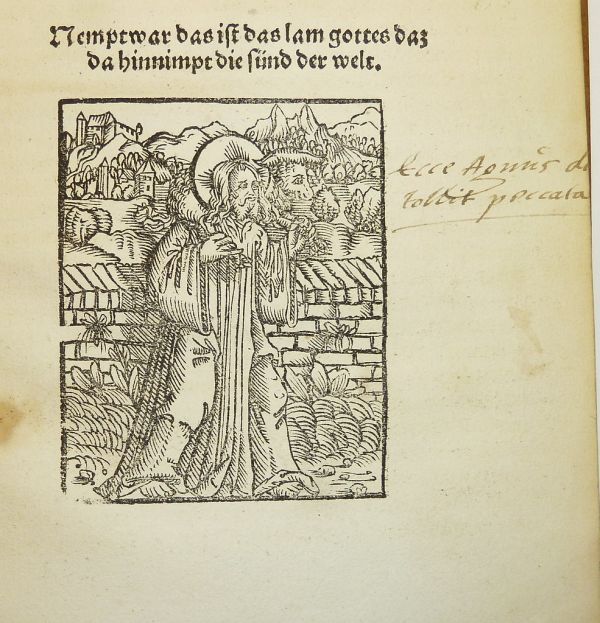 Nemptwar das ist das lam gottes daz
da hinnimpt die sünd der welt.
Ecce Agnus d
tollit peccata